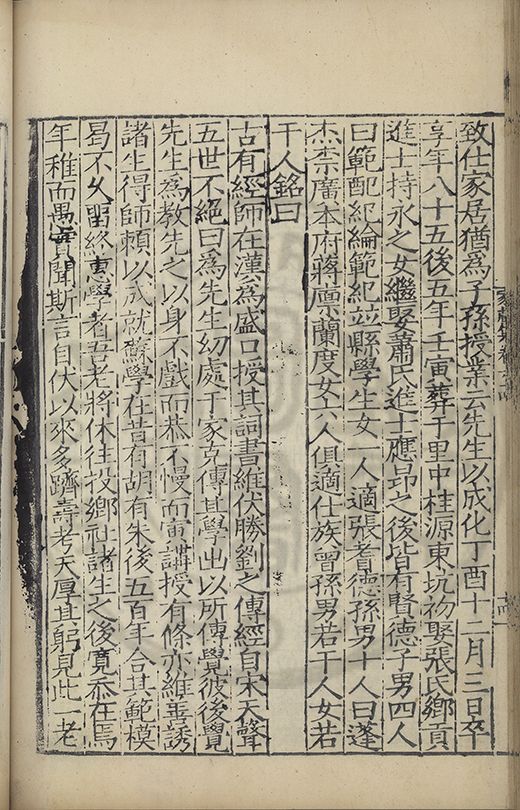 致仕家居猶爲子孫授業云先生以成化丁酉十二月三日卒
享年八十五後五年壬寅葬于里中桂源東坑初娶張氏鄉貢
進士持永之女繼娶蕭氏進士應昂之後皆有賢德子男四人
曰範配紀綸範紀並縣學生女一人適張耆德孫男十人曰蓬
杰柰廣本府蔣廪蘭度女六人俱適仕族曾孫男若干人女若
干人銘曰
古有經師在漢爲盛口授其詞書維伏勝劉之傳經自宋天聲
五世不絕曰爲先生幼處于家克傳其學出以所傳覺彼後覺
先生爲教先之以身不戲而恭不慢而寅講授有條亦維善誘
諸生得師頼以成就蘇學在昔有胡有朱後五百年合其範模
曷不乆留終惠學者吾老將休往投鄉社諸生之後寛忝在焉
年稚而愚實聞斯言自伏以來多躋壽考天厚其躬見此一老